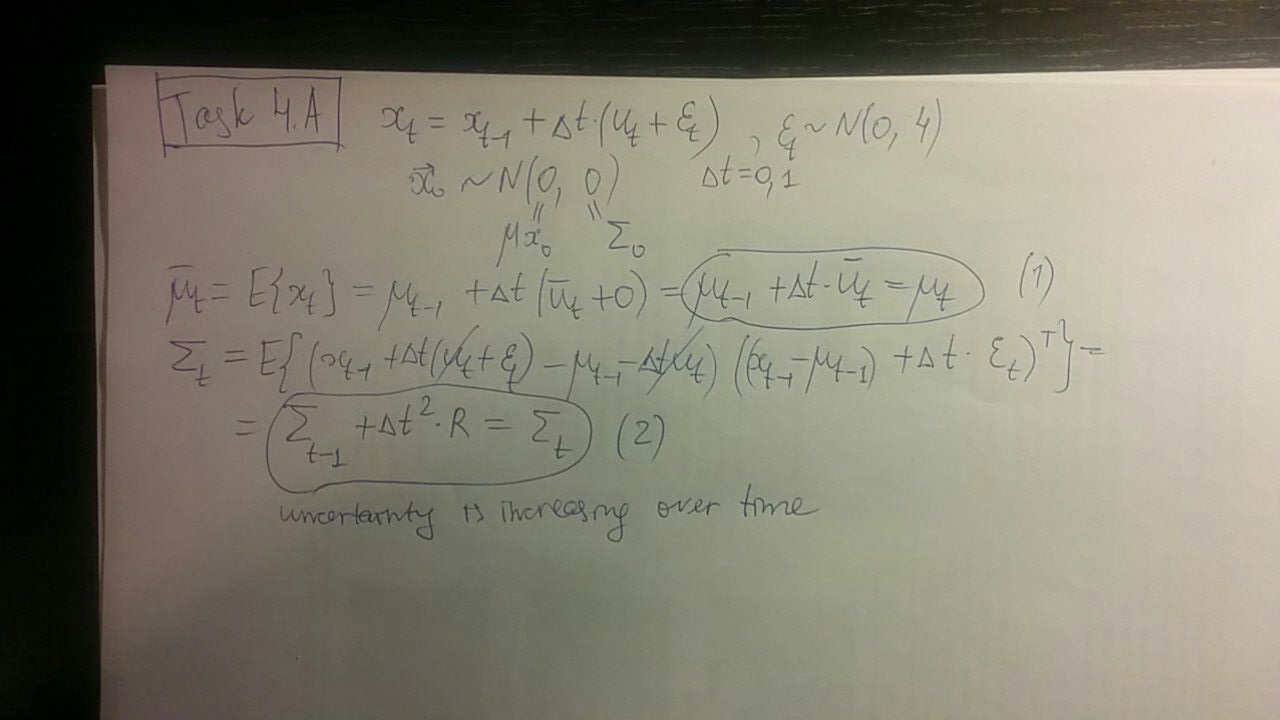 Task 4.A x_t = x_{t-1} + Δt·(u_t + ε_t) , ε_t ~ N(0, 4)
x⃗_0 ~ N(0, 0) Δt=0,1
= =
μx_0 Σ_0
μ̄_t = E{x_t} = μ_{t-1} + Δt (ū_t + 0) = μ_{t-1} + Δt·ū_t = μ_t (1)
Σ_t = E{(x_{t-1} + Δt(u_t + ε_t) - μ_{t-1} - Δt u_t) ((x_{t-1} - μ_{t-1}) + Δt · ε_t)^T} =
= Σ_{t-1} + Δt²·R = Σ_t (2)
uncertainty is increasing over time